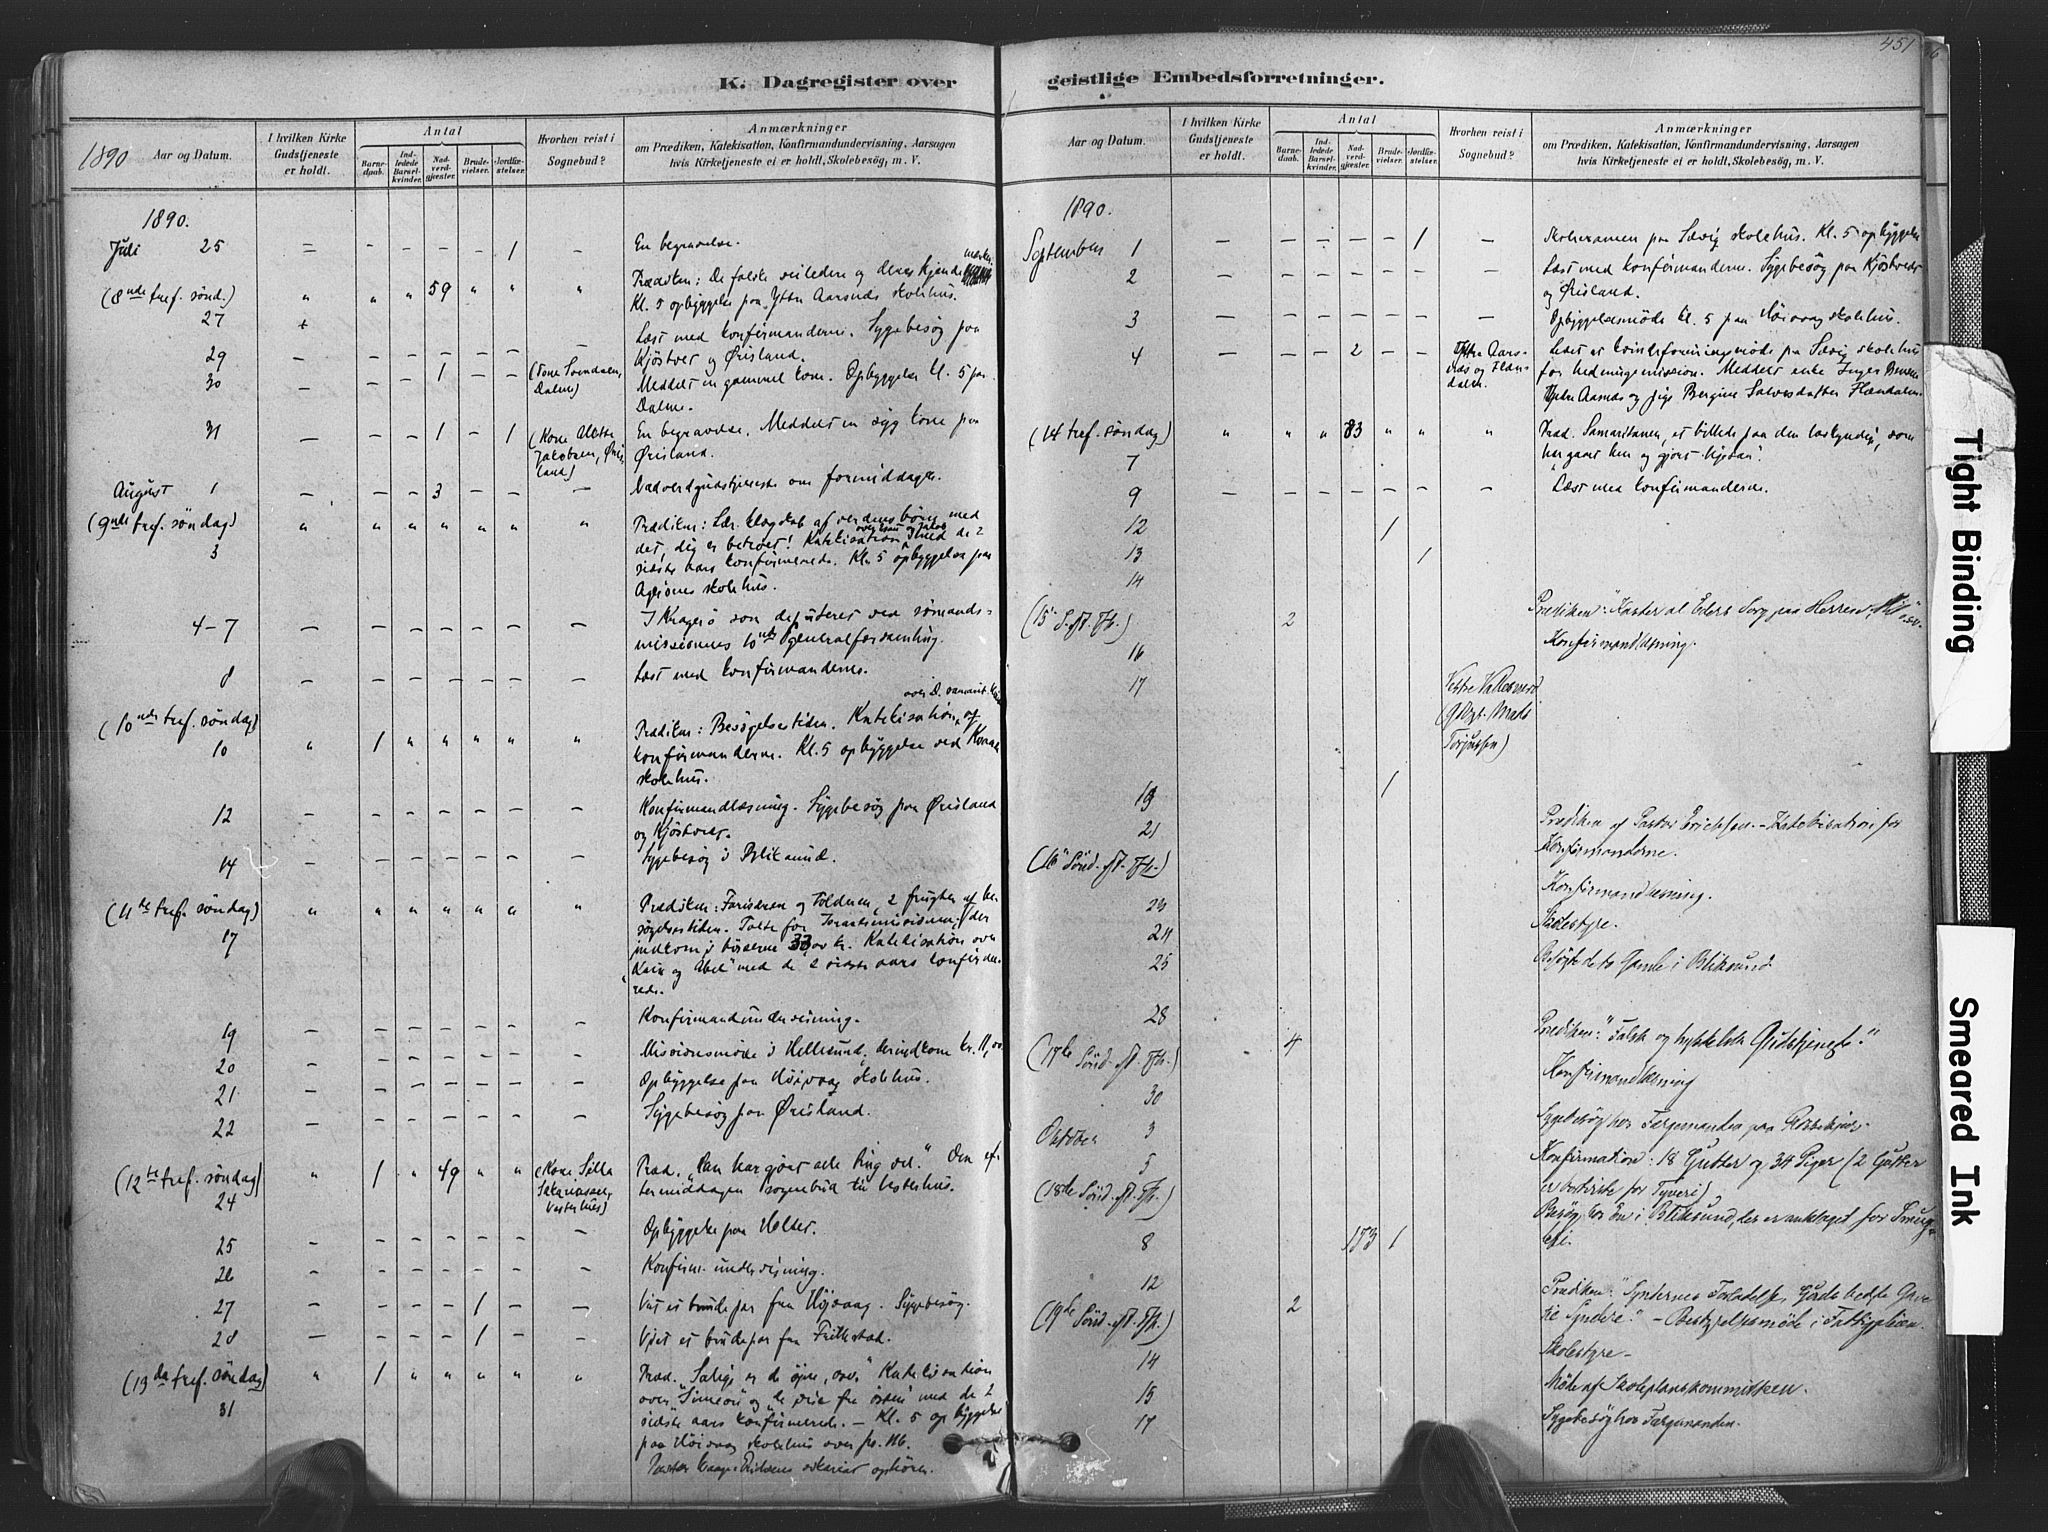 451
K. Dagregister over geistlige Embedsforretninger.
1890
Aar og Datum.
I hvilken Kirke Gudstjeneste er holdt.
Antal
Barnedaab.
Indledede Barselkvinder.
Nadverdgjæster.
Brudevielser.
Jordfæstelser.
Hvorhen reist i Sognebud?
Anmærkninger
om Prædiken, Katekisation, Konfirmandundervisning, Aarsagen
hvis Kirketjeneste ei er holdt, Skolebesøg, m. V.
1890.
Juli 25 – – – – – 1 – En begravelse.
(8nde tref. sønd.) 27 " " " 59 " " " Prædiken: De falske veiledere og deres kjende
Kl. 5 opbyggelse paa Ytre Aarsnæs skolehus.
29 Læst med konfirmanderne. Sygebesøg paa
Kjöstvet og Ørisland.
30 – – – 1 – – Meddelt en gammel kone. Opbyggelse kl. 5 paa
Dalene.
31 – – – 1 – 1 (Kone
Jakobsen, Ørisland) En begravelse. Meddelt en syg kone paa
Ørisland.
August 1 – – – 3 – – – Nadverdgudstjeneste om formiddagen.
(9nde tref. søndag) 3 " " " " " " " Prædiken: Lær klogskab af verdens børn med
det, dig er betroet! Katekisation med de 2
sidste aars konfirmerede. Kl. 5 opbyggelse paa
skolehus.
4–7 – – – – – – – I Kragerö som deputeret ved sømands-
missionens 10nde generalforsamling.
8 – – – – – – – Læst med konfirmanderne.
(10nde tref. søndag) 10 " 1 " " " " " Prædiken: Besøgelsestiden. Katekisation af
konfirmanderne. Kl. 5 opbyggelse ved
skolehus.
12 – – – – – – – Konfirmandlæsning. Sygebesøg paa Ørisland
og Kjöstvet.
14 – – – – – – – Sygebesøg i Bliksund.
(11te tref. søndag) 17 " " " " " " " Prædiken: Farisæeren og Tolderen, 2 frugter af be-
søgelsestiden. Talte for Israelsmissionen; der
indkom i bøsserne 33,00 kr. Katekisation over
"Kain og Abel" med de 2 sidste aars konfirme-
rede.
19 – – – – – – – Konfirmandundervisning.
20 – – – – – – – Missionsmøde i Hellesund, der indkom kr. 11,00
21 – – – – – – – Opbyggelse paa Høivaag skolehus.
22 – – – – – – – Sygebesøg paa Ørisland.
(12te tref. søndag) 24 " 1 " 49 " " (Kone
Vesterhus) Præd. "Han har gjort alle ting vel." Den ef-
termiddagen sognebud til Vesterhus.
25 – – – – – – – Opbyggelse paa Holter.
26 – – – – – – – Konfirm. undervisning.
27 – – – – 1 – – Viet et brudepar fra Høivaag. Sygebesøg.
28 – – – – 1 – – Viet et brudepar fra Fredrikstad.
(13de tref. søndag) 31 " 1 " " " " " Præd. "Salige er de øjne, osv." Katekisation
over "Simeon og de vise fra østen" med de 2
sidste aars konfirmerede. – Kl. 5 opbyggelse
paa Høivaag skolehus over
Pastor vikariat ophörer.
Aar og Datum.
I hvilken Kirke Gudstjeneste er holdt.
Antal
Barnedaab.
Indledede Barselkvinder.
Nadverdgjæster.
Brudevielser.
Jordfæstelser.
Hvorhen reist i Sognebud?
Anmærkninger
om Prædiken, Katekisation, Konfirmandundervisning, Aarsagen
hvis Kirketjeneste ei er holdt, Skolebesøg, m. V.
1890.
September 1 – – – – – 1 – Skoleexamen paa Sævig skolehus. Kl. 5 opbyggelse
2 – – – – – – – Læst med konfirmanderne. Sygebesøg paa Kjöstvedt
og Ørisland.
3 – – – – – – – Opbyggelsesmøde kl. 5 paa Høivaag skolehus.
4 – – – 2 – – Ytre Aars-
næs og
Ledet et kvindeforeningsmøde paa Sævig skolehus
for hedningemission. Meddelt enke Inger
Ytre Aarsnæs og pige Bergine Salvesdatter
(14 tref. søndag) 7 " " " 83 " " " Præd. Samaritanen, et billede paa den
"gaar hen og gjør ligesaa".
9 – – – – – – – Læst med konfirmanderne.
12 1
13 1
14
(15 S. eft. Tr.) 2 Prædiken: "Kaster al Eders Sorg paa Herren"
16 Konfirmandlæsning.
17 Vestre Vallesverd
Mads
Torjussen)
19 1
21
(16 Sønd. eft. Tr.) Prædiken af Pastor Erichsen. – Katekisation for
Konfirmanderne.
23 Konfirmandlæsning.
24 Skolestyre.
25 Besøgte de to Gamle i Bliksund.
28
(17de Sønd. eft. Tr.) 4 Prædiken: "Falsk og hykkelsk Gudstjeneste."
30 Konfirmandlæsning
Oktober 3 Sygebesøg hos Færgemanden paa
5
(18de Sønd. eft. Tr.) Konfirmation: 18 Gutter og 34 Piger (2 Gutter
er bortviste for Tyveri)
8 173 1 Besøg hos En i Bliksund, der er anklaget for Smug-
leri.
12
(19de Sønd. eft. Tr.) 2 Prædiken: "Syndernes Forladelse, Guds bedste Gave
til Syndere." – Bestyrelsesmøde i
14 Skolestyre
15 Møde af Skoleplanskommitteen.
17 Sygebesøg hos Færgemanden.
Tight Binding
Smeared Ink